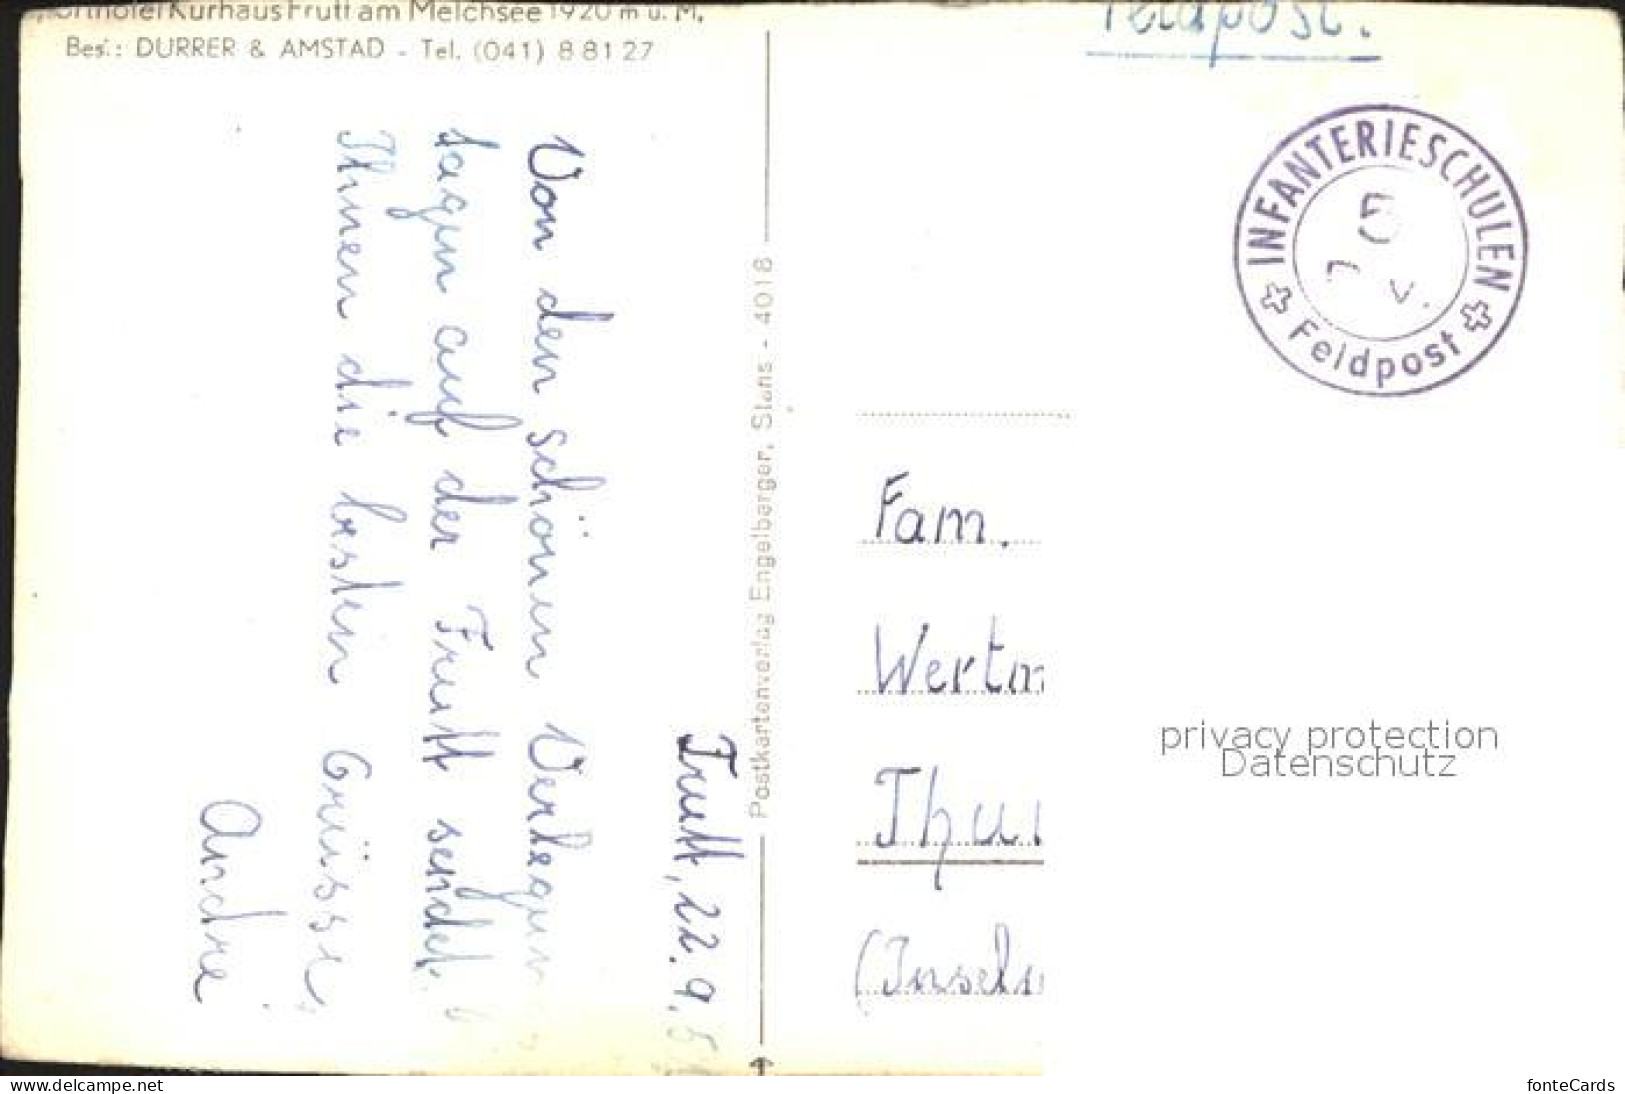 Sporthotel Kurhaus Frutt am Melchsee 1920 m ü. M.
Bes.: DURRER & AMSTAD - Tel. (041) 8 81 27
Frutt, 22. 9.
Von den schönen Verlegun
tagen auf der Frutt sendet
Ihnen die besten Grüsse,
André
Postkartenverlag Engelberger, Stans - 4018
Feldpost.
INFANTERIESCHULEN
Feldpost
Fam.
Wertm
Thu
(Insels
privacy protection
Datenschutz
www.delcampe.net
fonteCards